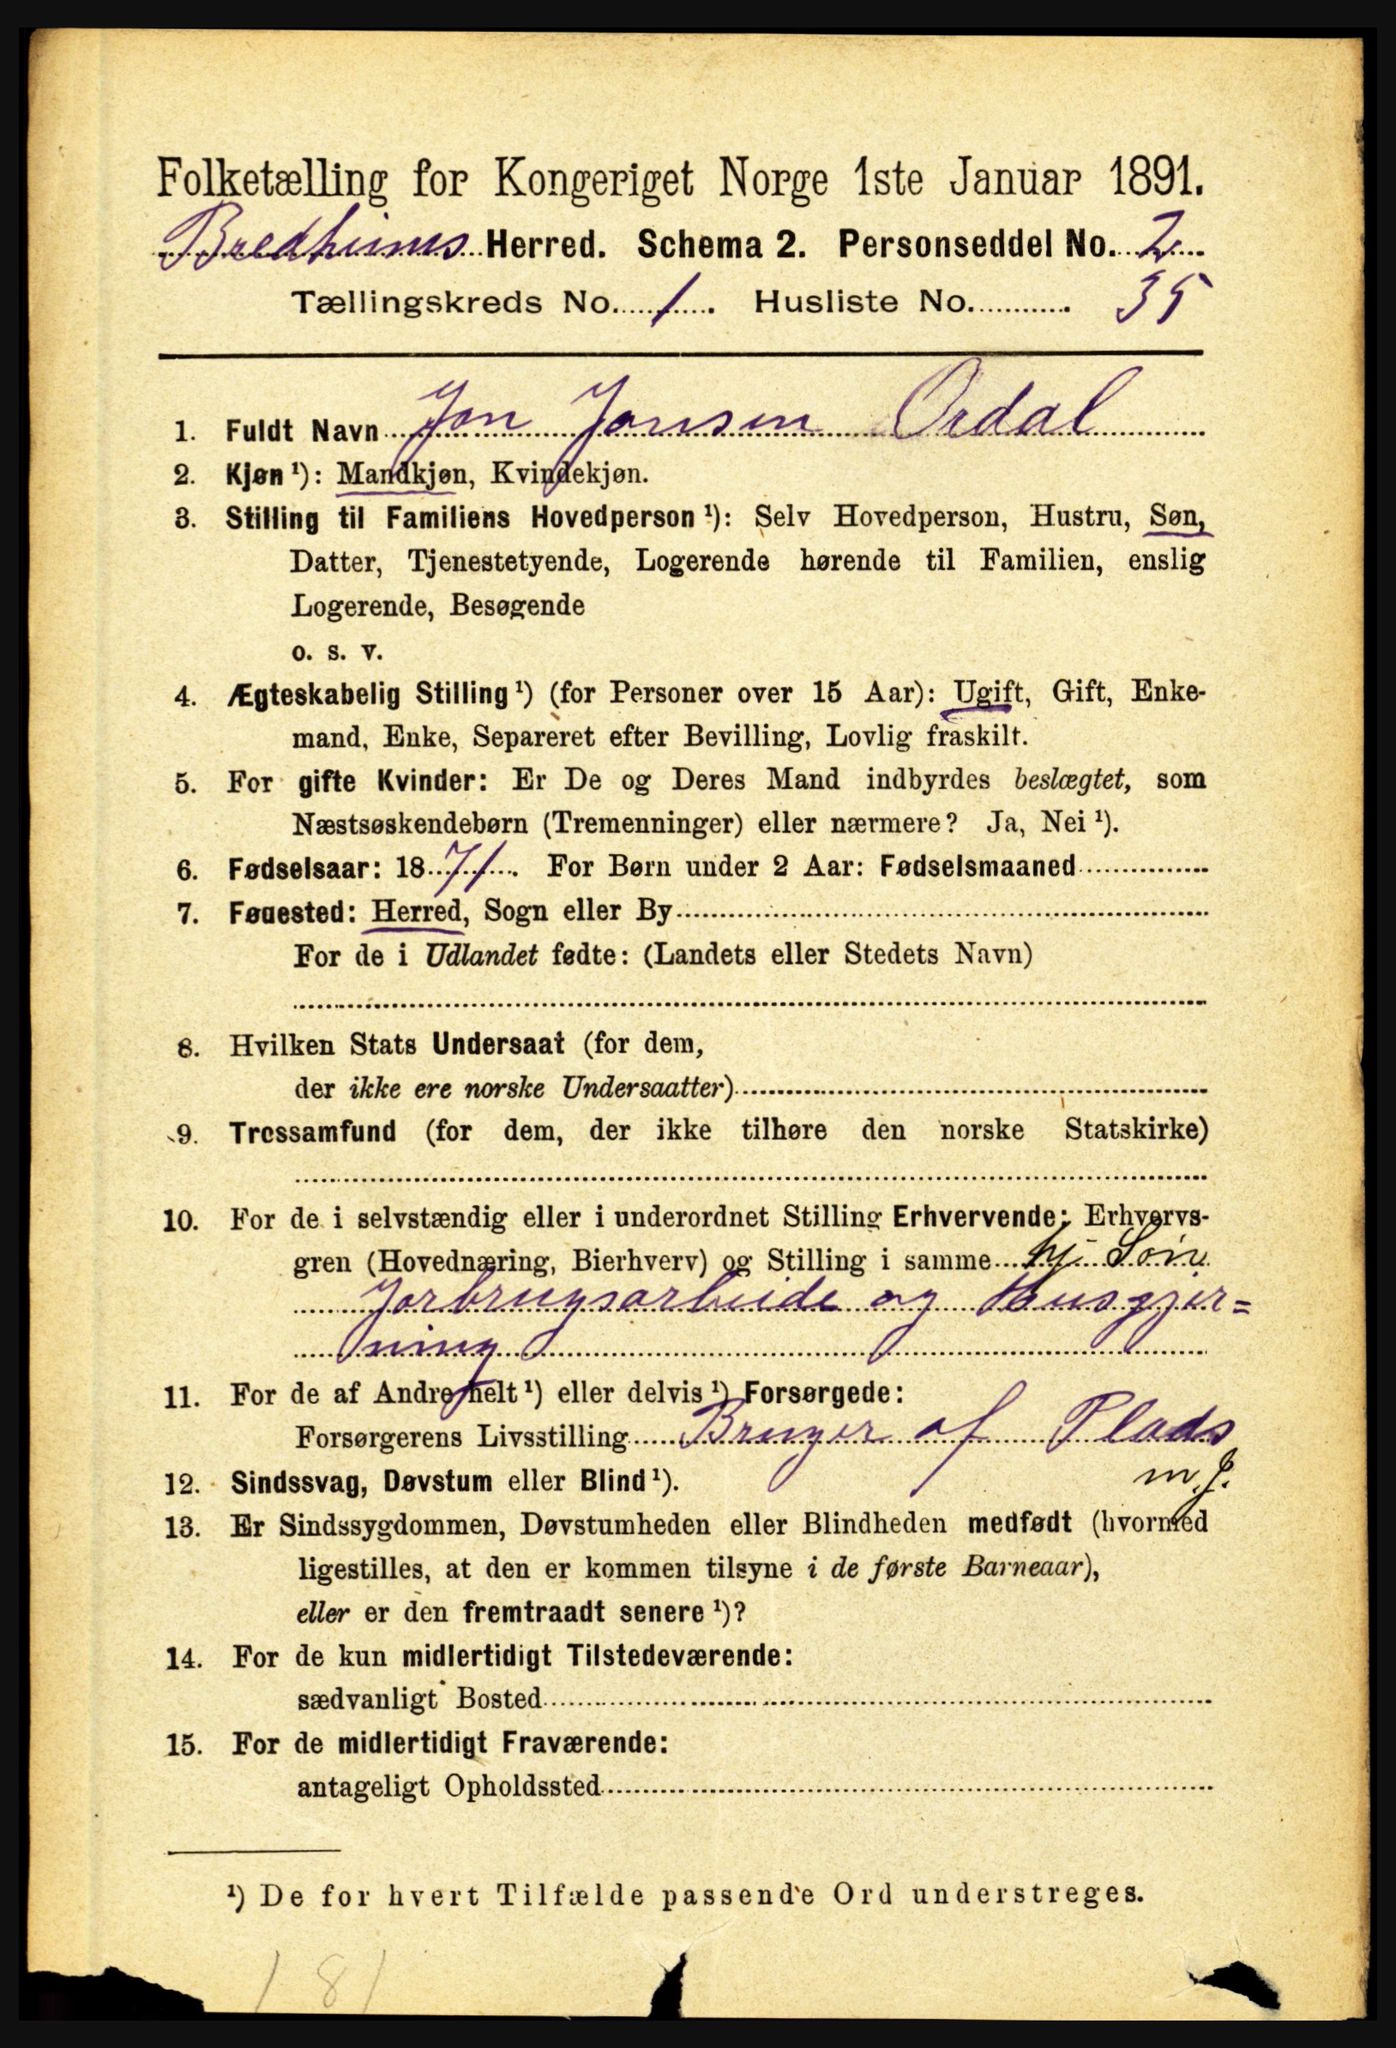 Folketælling for Kongeriget Norge 1ste Januar 1891.
Bredheims Herred. Schema 2. Personseddel No. 2.
Tællingskreds No. 1. Husliste No. 35
1. Fuldt Navn Jon Jonsen Ordal
2. Kjøn ¹): Mandkjøn, Kvindekjøn.
3. Stilling til Familiens Hovedperson ¹): Selv Hovedperson, Hustru, Søn,
Datter, Tjenestetyende, Logerende hørende til Familien, enslig
Logerende, Besøgende
o. s. v.
4. Ægteskabelig Stilling ¹) (for Personer over 15 Aar): Ugift, Gift, Enke-
mand, Enke, Separeret efter Bevilling, Lovlig fraskilt.
5. For gifte Kvinder: Er De og Deres Mand indbyrdes beslægtet, som
Næstsøskendebørn (Tremenninger) eller nærmere? Ja, Nei ¹).
6. Fødselsaar: 1871. For Børn under 2 Aar: Fødselsmaaned
7. Fødested: Herred, Sogn eller By
For de i Udlandet fødte: (Landets eller Stedets Navn)
8. Hvilken Stats Undersaat (for dem,
der ikke ere norske Undersaatter)
9. Trossamfund (for dem, der ikke tilhøre den norske Statskirke)
10. For de i selvstændig eller i underordnet Stilling Erhvervende: Erhvervs-
gren (Hovednæring, Bierhverv) og Stilling i samme hj. Søn
Jorbrugsarbeide og Husgjer=
ning
11. For de af Andre helt ¹) eller delvis ¹) Forsørgede:
Forsørgerens Livsstilling Bruger af Plads
m. J.
12. Sindssvag, Døvstum eller Blind ¹).
13. Er Sindssygdommen, Døvstumheden eller Blindheden medfødt (hvormed
ligestilles, at den er kommen tilsyne i de første Barneaar),
eller er den fremtraadt senere ¹)?
14. For de kun midlertidigt Tilstedeværende:
sædvanligt Bosted
15. For de midlertidigt Fraværende:
antageligt Opholdssted
¹) De for hvert Tilfælde passende Ord understreges.
181